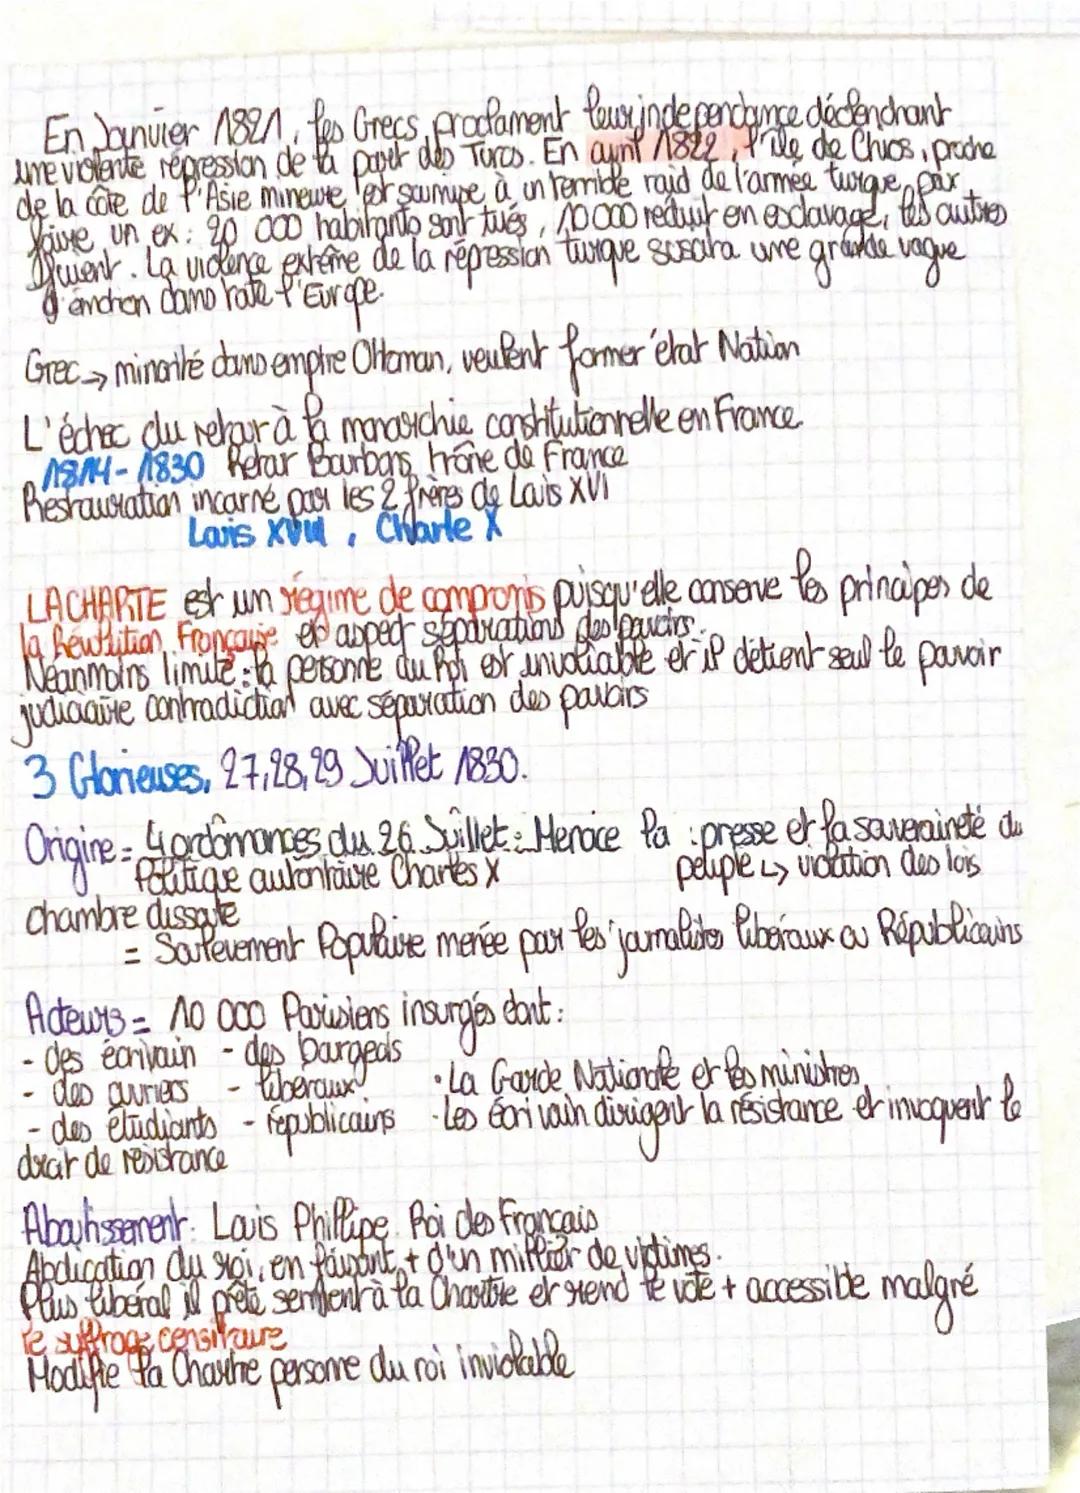 En Janvier 1821, les Grecs proclament leur independance déclenchant
une violente répression de la part des Turcs. En avril 1822, l'île de Chios, proche
de la côte de l'Asie mineure est soumise à un terrible raid de l'armée turque, pour
faire un ex : 20 000 habitants sont tués, 10 000 reduit en esclavage, les autres
fuient. La violence extrême de la répression turque suscita une grande vague
d'émotion dans toute l'Europe.
Grec → minorité dans empire Ottoman, veulent former état Nation
L'échec du retour à la monarchie constitutionnelle en France
1814-1830 Retour Bourbons trône de France
Restauration incarné par les 2 frères de Louis XVI
Louis XVIII, Charle X
LA CHARTE est un régime de compromis puisqu'elle conserve les principes de
la Révolution Française et aspect séparations des pouvoirs.
Néanmoins limité : la personne du Roi est inviolable et il détient seul le pouvoir
judiciaire contradiction avec séparation des pouvoirs
3 Glorieuses, 27, 28, 29 Juillet 1830.
Origine = 4 ordonnances du 26 Juillet : Menace la : presse et la souveraineté du
Politique autoritaire Charles X peuple ↳ violation des lois
chambre dissoute
= Soulevement Populaire menée par les journalistes libéraux ou Républicains
Acteurs = 10 000 Parisiens insurgés dont :
- des écrivain - des bourgeois
- des ouvriers - libéraux • La Garde Nationale et les ministres
- des étudiants - républicains • Les écrivain dirigent la résistance et invoquent le
droit de résistance
Aboutissement : Louis Phillipe Roi des Français
Abdication du roi, en faisant + d'un millier de victimes.
Plus libéral il prête serment à la Chartre et rend le vote + accessible malgré
le suffrage censitaire
Modifie la Chartre personne du roi inviolable